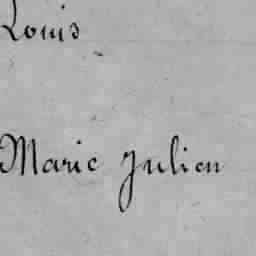 Louis
Marie Julien